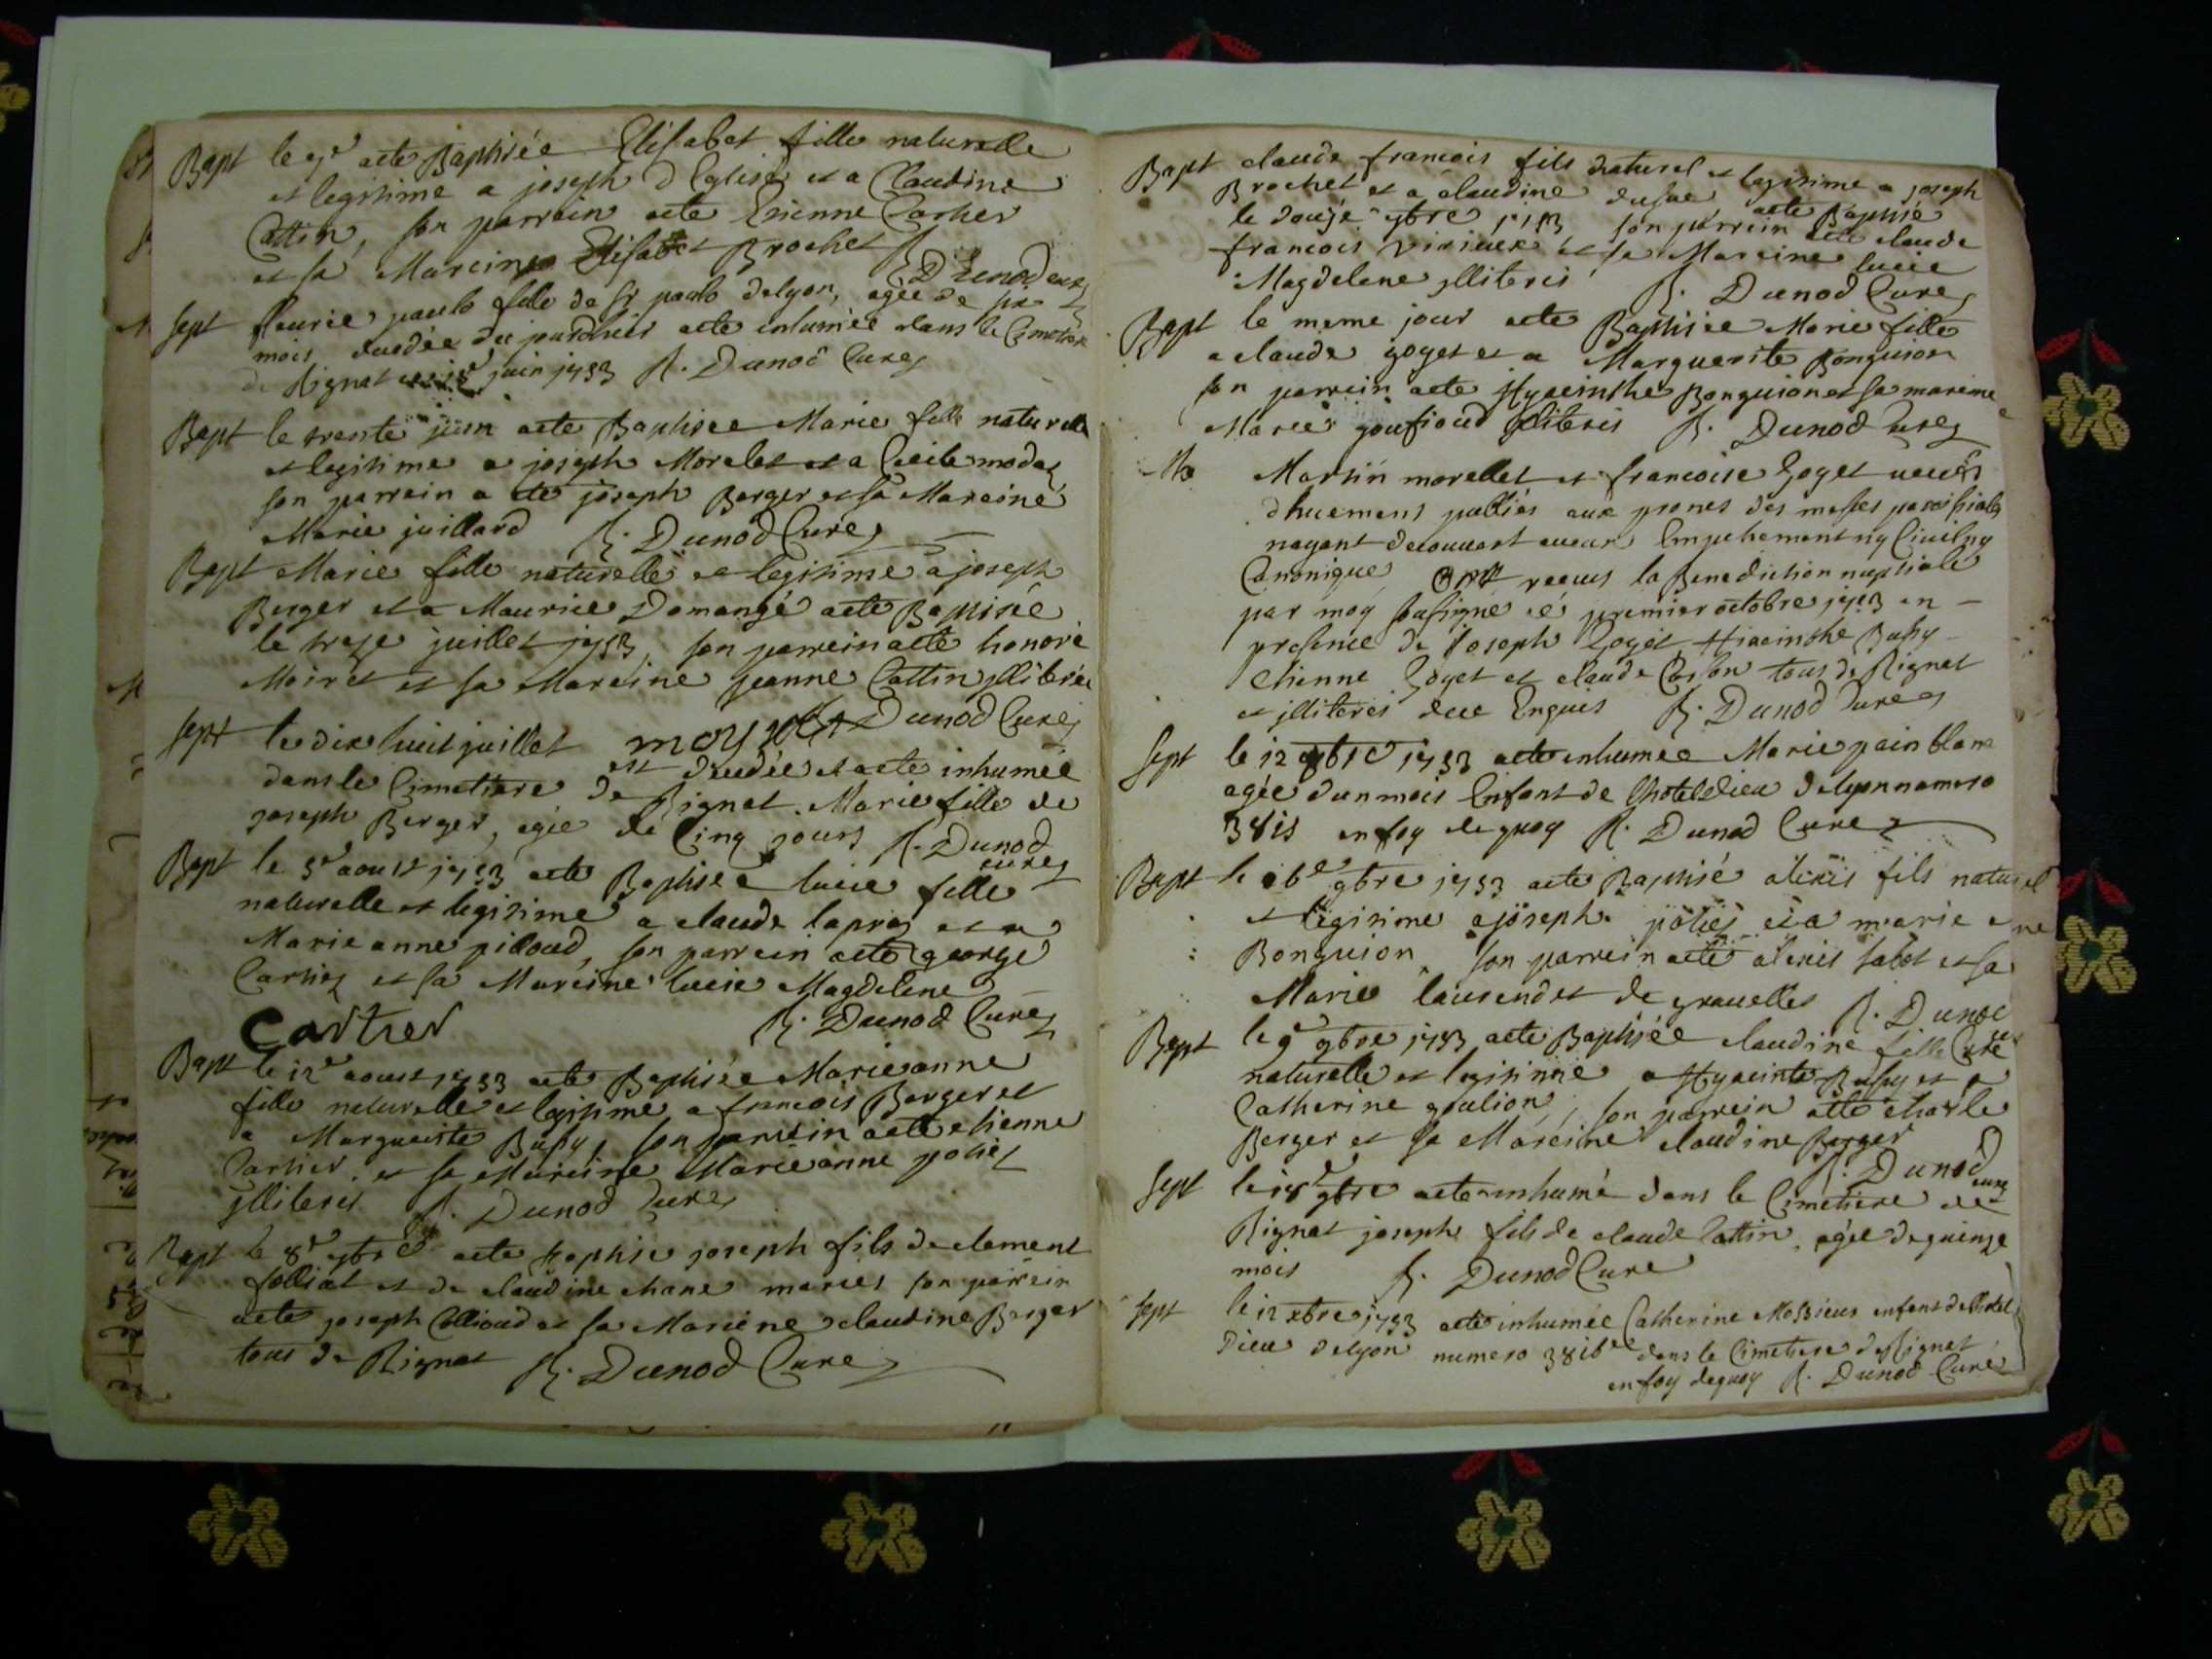 Bapt le 9e aete Baptisée Elisabet fille naturelle
et legitime a joseph D Eglise et a Claudine
Cattin, son parrein aete Etienne Carthier
et sa Mareine Elisabet Brochet
R Dunod cure
Sept fleurie paulo fille de Sr paulo delyon, agée de six
mois, ducdée du jourdhier aete inhumée dans le Cimetiere
de Rignat juin 1753 R. Dunod Cure
Bapt le trente juin aete Baptisee Marie fille naturelle
et legitime a joseph Morelet et a Cecile modas
son parrein a ete joseph Berger et sa Mareine
Marie juillard R. Dunod Cure
Bapt Marie fille naturelle et legitime a joseph
Berger et a Maurice Domangé aete Baptisée
le treze juillet 1753, son parrein aete honoré
Moiret et sa Mareine jeanne Cattin illiterée
R. Dunod Cure
Sept le dix huit juillet est ducdée et aete inhumée
dans le Cimetiere de Rignat. Marie fille de
joseph Berger, agée de Cinq jours R. Dunod
cure
Bapt le 5e aoust 1753 aete Baptisée lucie fille
naturelle et legitime a claude lapras et a
Marie anne pilloud, son parrein aete george
Carthier et sa Mareine lucie Magdelene
Cartier R. Dunod Cure
Bapt le 12e aoust 1753 aete Baptisée Marieanne
fille naturelle et legitime a francois Berger et
a Margueritte Bussy, son parrein aete etienne
Carthier et sa Mareine Marieanne potiez
illiteres R. Dunod Cure
Bapt le 8e 7bre aete Baptise joseph fils de clement
folliat et de claudine chane mariés son parrein
aete joseph Collioud et sa Mareine claudine Berger
tous de Rignat R. Dunod Cure
Bapt claude francois fils naturel et legitime a joseph
Brochet et a claudine dufue aete Baptisé
le douze 7bre 1753 son parrein aete claude
francois Virieux et sa Mareine lucie
Magdelene illiteres R. Dunod Cure
Bapt le meme jour aete Baptisée Marie fille
a claude goyet et a Marguerite Bonguion
son parrein aete Hyacinthe Bonguion et sa mareine
Marie goufioud illiteres R. Dunod Cure
Ma Martin morellet et francoise Goyet
dhuement publiés aux prones des messes paroissiales
nayant decouvert aucun Empchement ny Civil ny
Canonique ont receus la Benediction nuptiale
par moy sousigné cé premier octobre 1753 en
presence de Joseph Goyet Hiacinthe Bussy
etienne Goyet et claude Cosson tous de Rignat
et illiteres deue Enquis R. Dunod Cure
Sept le 12 8bre 1753 aete inhumee Marie pain blanc
agée dun mois Enfant de lhoteldieu delyon numero
3815 en foy de quoy R. Dunod Cure
Bapt le 9bre 1753 aete Baptisé alexis fils naturel
et legitime a joseph potiez et a marie ane
Bonguion son parrein aete alexis sabot et sa
Marie laurendet de gravelles R. Dunod
Curé
Bapt le 9e 9bre 1753 aete Baptisée claudine fille
naturelle et legitime a Hyacinte Bussy et a
Catherine goulion, son parrein aete charle
Berger et sa Mareine claudine Berger
R. Dunod cure
Sept le 18e 9bre aete inhumé dans le Cimetiere de
Rignat joseph fils de claude Cattin, agée de quinze
mois R. Dunod Cure
Sept le 12 xbre 1753 aete inhumée Catherine Messieux enfant de lhotel
Dieu delyon numero 3816e dans le Cimetiere de Rignat
en foy dequoy R. Dunod Curé